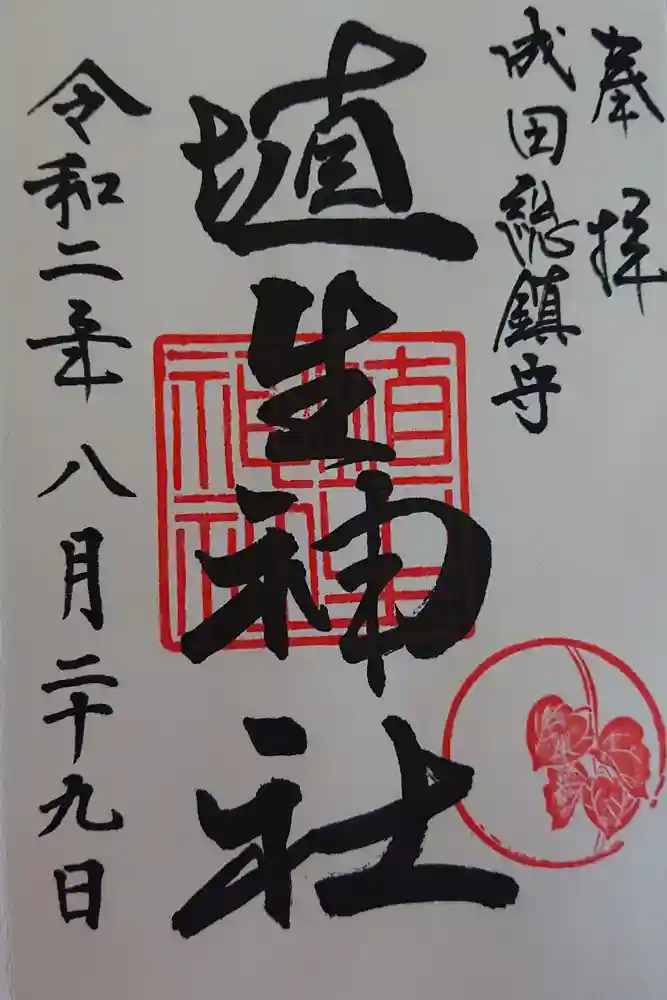 奉拝
成田総鎮守
埴生神社
埴生神社
令和二年八月二十九日